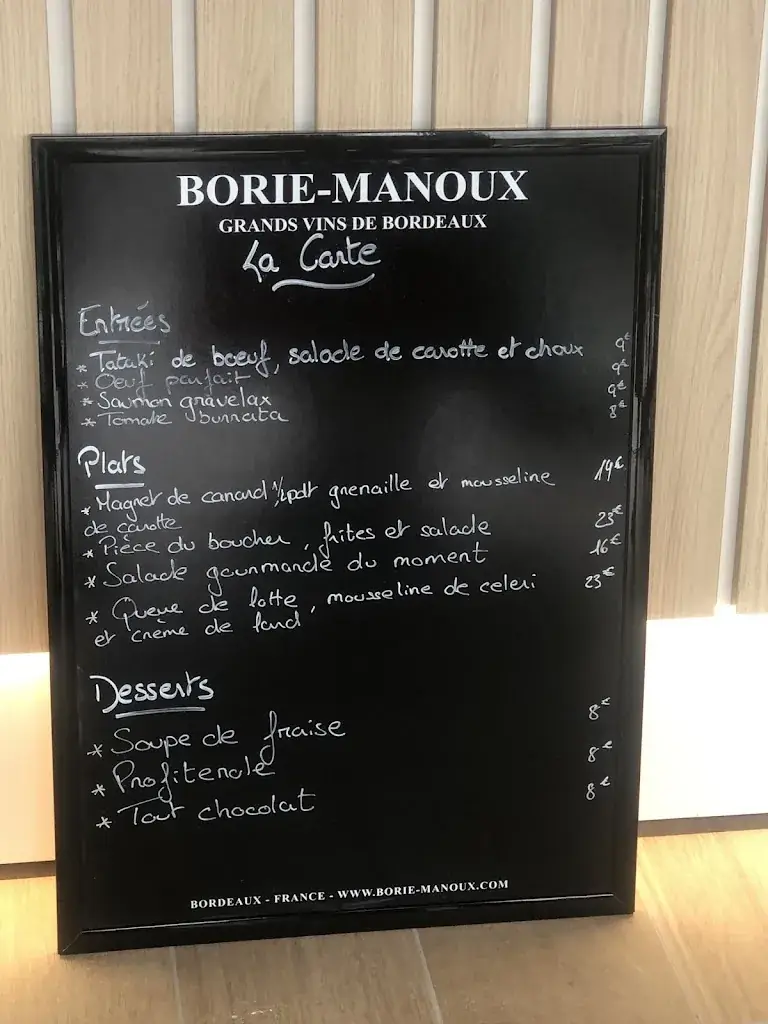 BORIE-MANOUX
GRANDS VINS DE BORDEAUX
La Carte
Entrées
* Tataki de bœuf, salade de carotte et choux 9€
* Oeuf parfait 9€
* Saumon gravelax 9€
* Tomate burrata 8€
Plats
* Magret de canard, pdt grenaille et mousseline 19€
de carotte
* Pièce du boucher, frites et salade 23€
* Salade gourmande du moment 16€
* Queue de lotte, mousseline de celeri 23€
et crème de lard
Desserts
* Soupe de fraise 8€
* Profiterole 8€
* Tout chocolat 8€
BORDEAUX - FRANCE - WWW.BORIE-MANOUX.COM